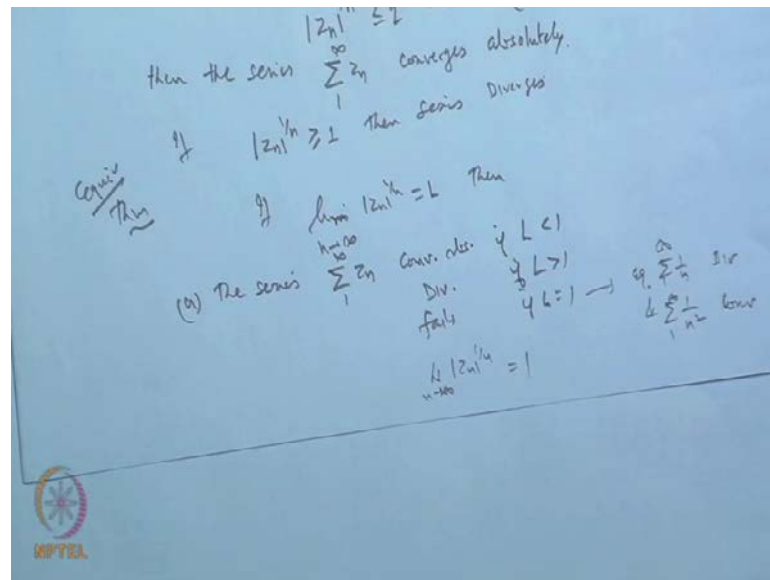 |zn|^{1/n} ≤ q
then the series \sum_{1}^{\infty} zn converges absolutely.
If |zn|^{1/n} ≥ 1 then series Diverges
Equiv
Thm
If lim_{n→∞} |zn|^{1/n} = L Then
(a) The series \sum_{1}^{\infty} zn Conv. abs. if L < 1
Div. if L > 1
fails if L = 1 → eg. \sum_{1}^{\infty} \frac{1}{n} Div
& \sum_{1}^{\infty} \frac{1}{n^2} Conv
Lt_{n→∞} |zn|^{1/n} = 1
NPTEL